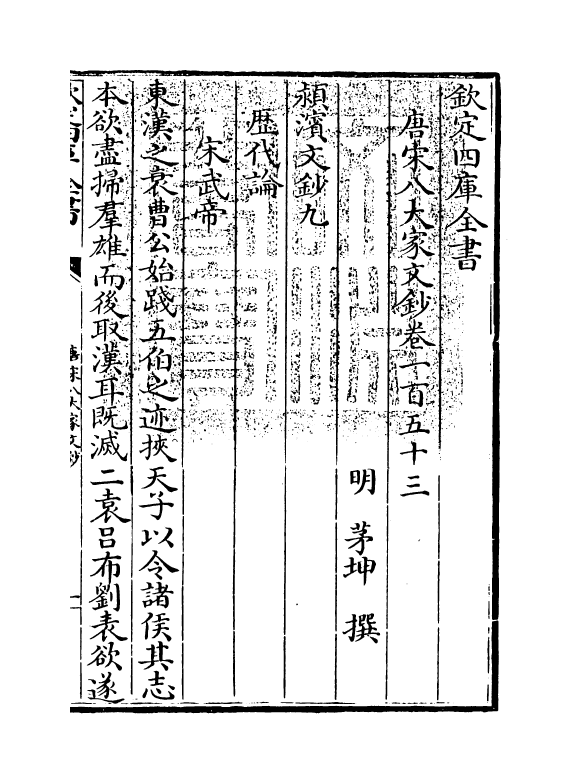 欽定四庫全書
唐宋八大家文鈔卷一百五十三
明　茅坤　撰
潁濱文鈔九
歴代論
宋武帝
東漢之衰曹公始踐五伯之迹挾天子以令諸侯其志
本欲盡掃羣雄而後取漢耳既滅二袁吕布劉表欲遂